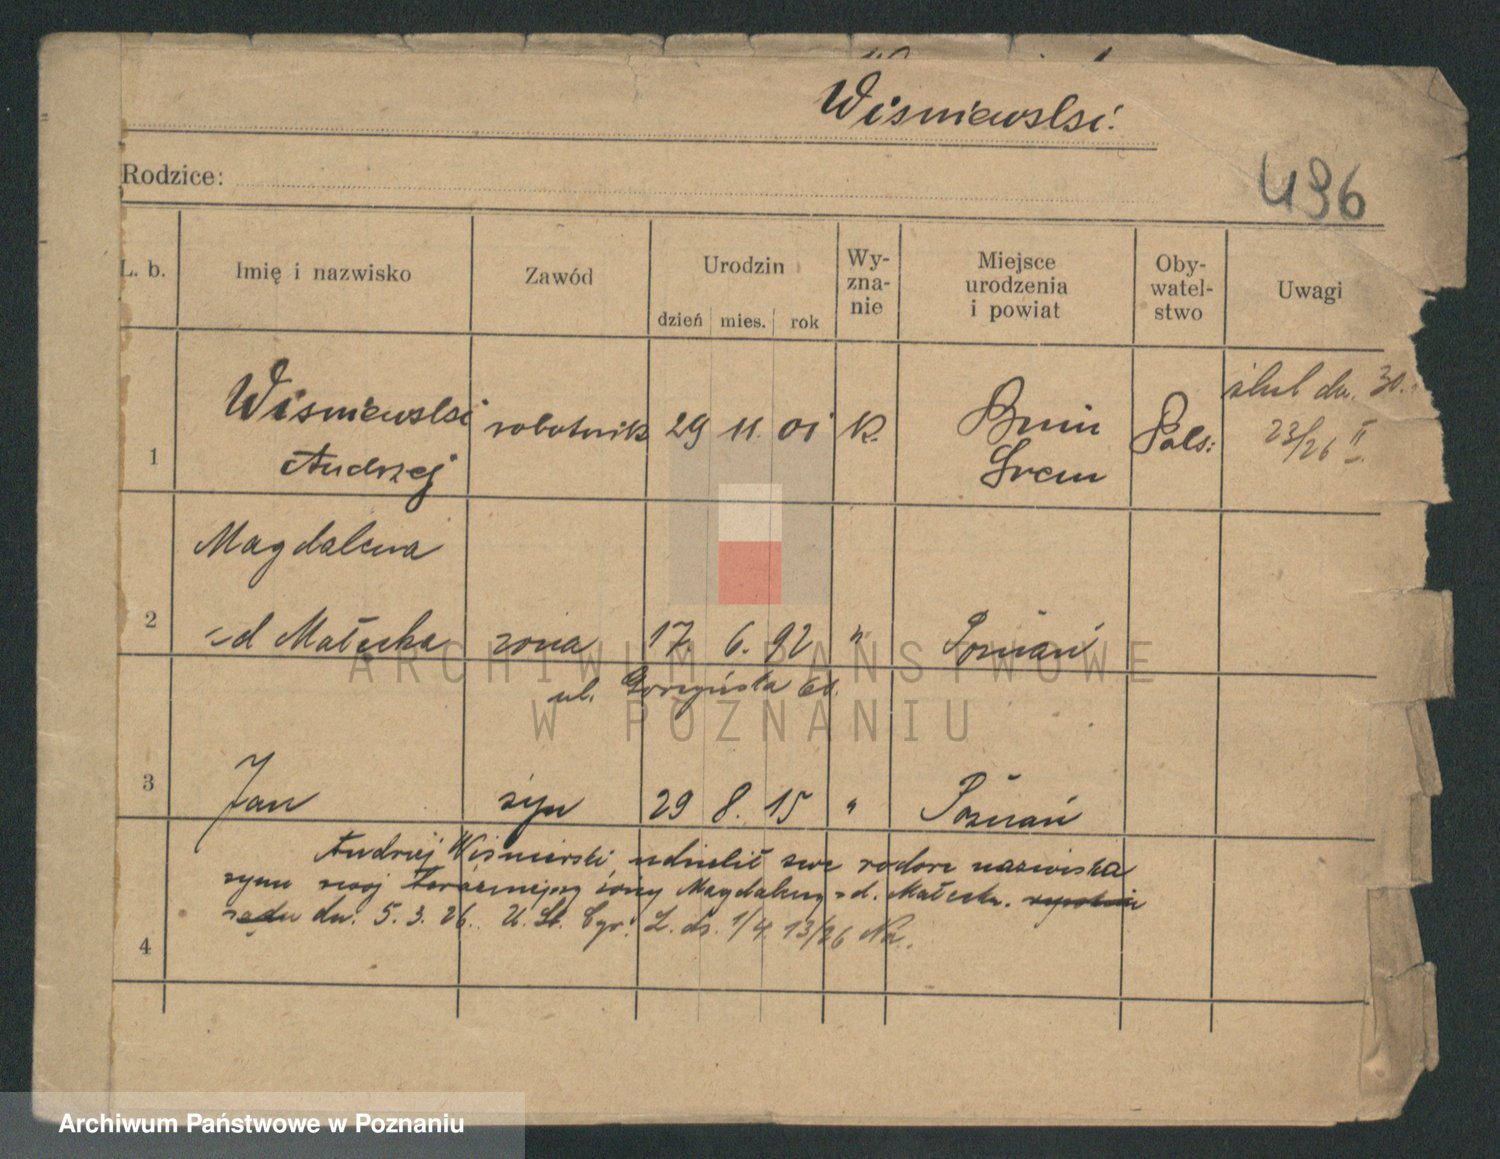 Wiśniewski.
Rodzice:
496
L. b. Imię i nazwisko Zawód Urodzin dzień mies. rok Wy-zna-nie Miejsce urodzenia i powiat Oby-watel-stwo Uwagi
1 Wiśniewski Andrzej robotnik 29 11. 01 k. Bnin Śrem Pols: ślub dn. 30.
23/26 II
Magdalena
2 z d Małecka żona 17. 6. 92 " Poznań
ul. Gorczyńska
3 Jan syn 29 8. 15 " Poznań
Andrzej Wiśniewski udzielił swe rodowe nazwisko
synu swej teraźniejszej żony Magdaleny z d. Małeck.
4 sądu dn. 5. 3. 26. U. St. Cyw. L. ds. 1/4 13/26
ARCHIWUM PAŃSTWOWE
W POZNANIU
Archiwum Państwowe w Poznaniu